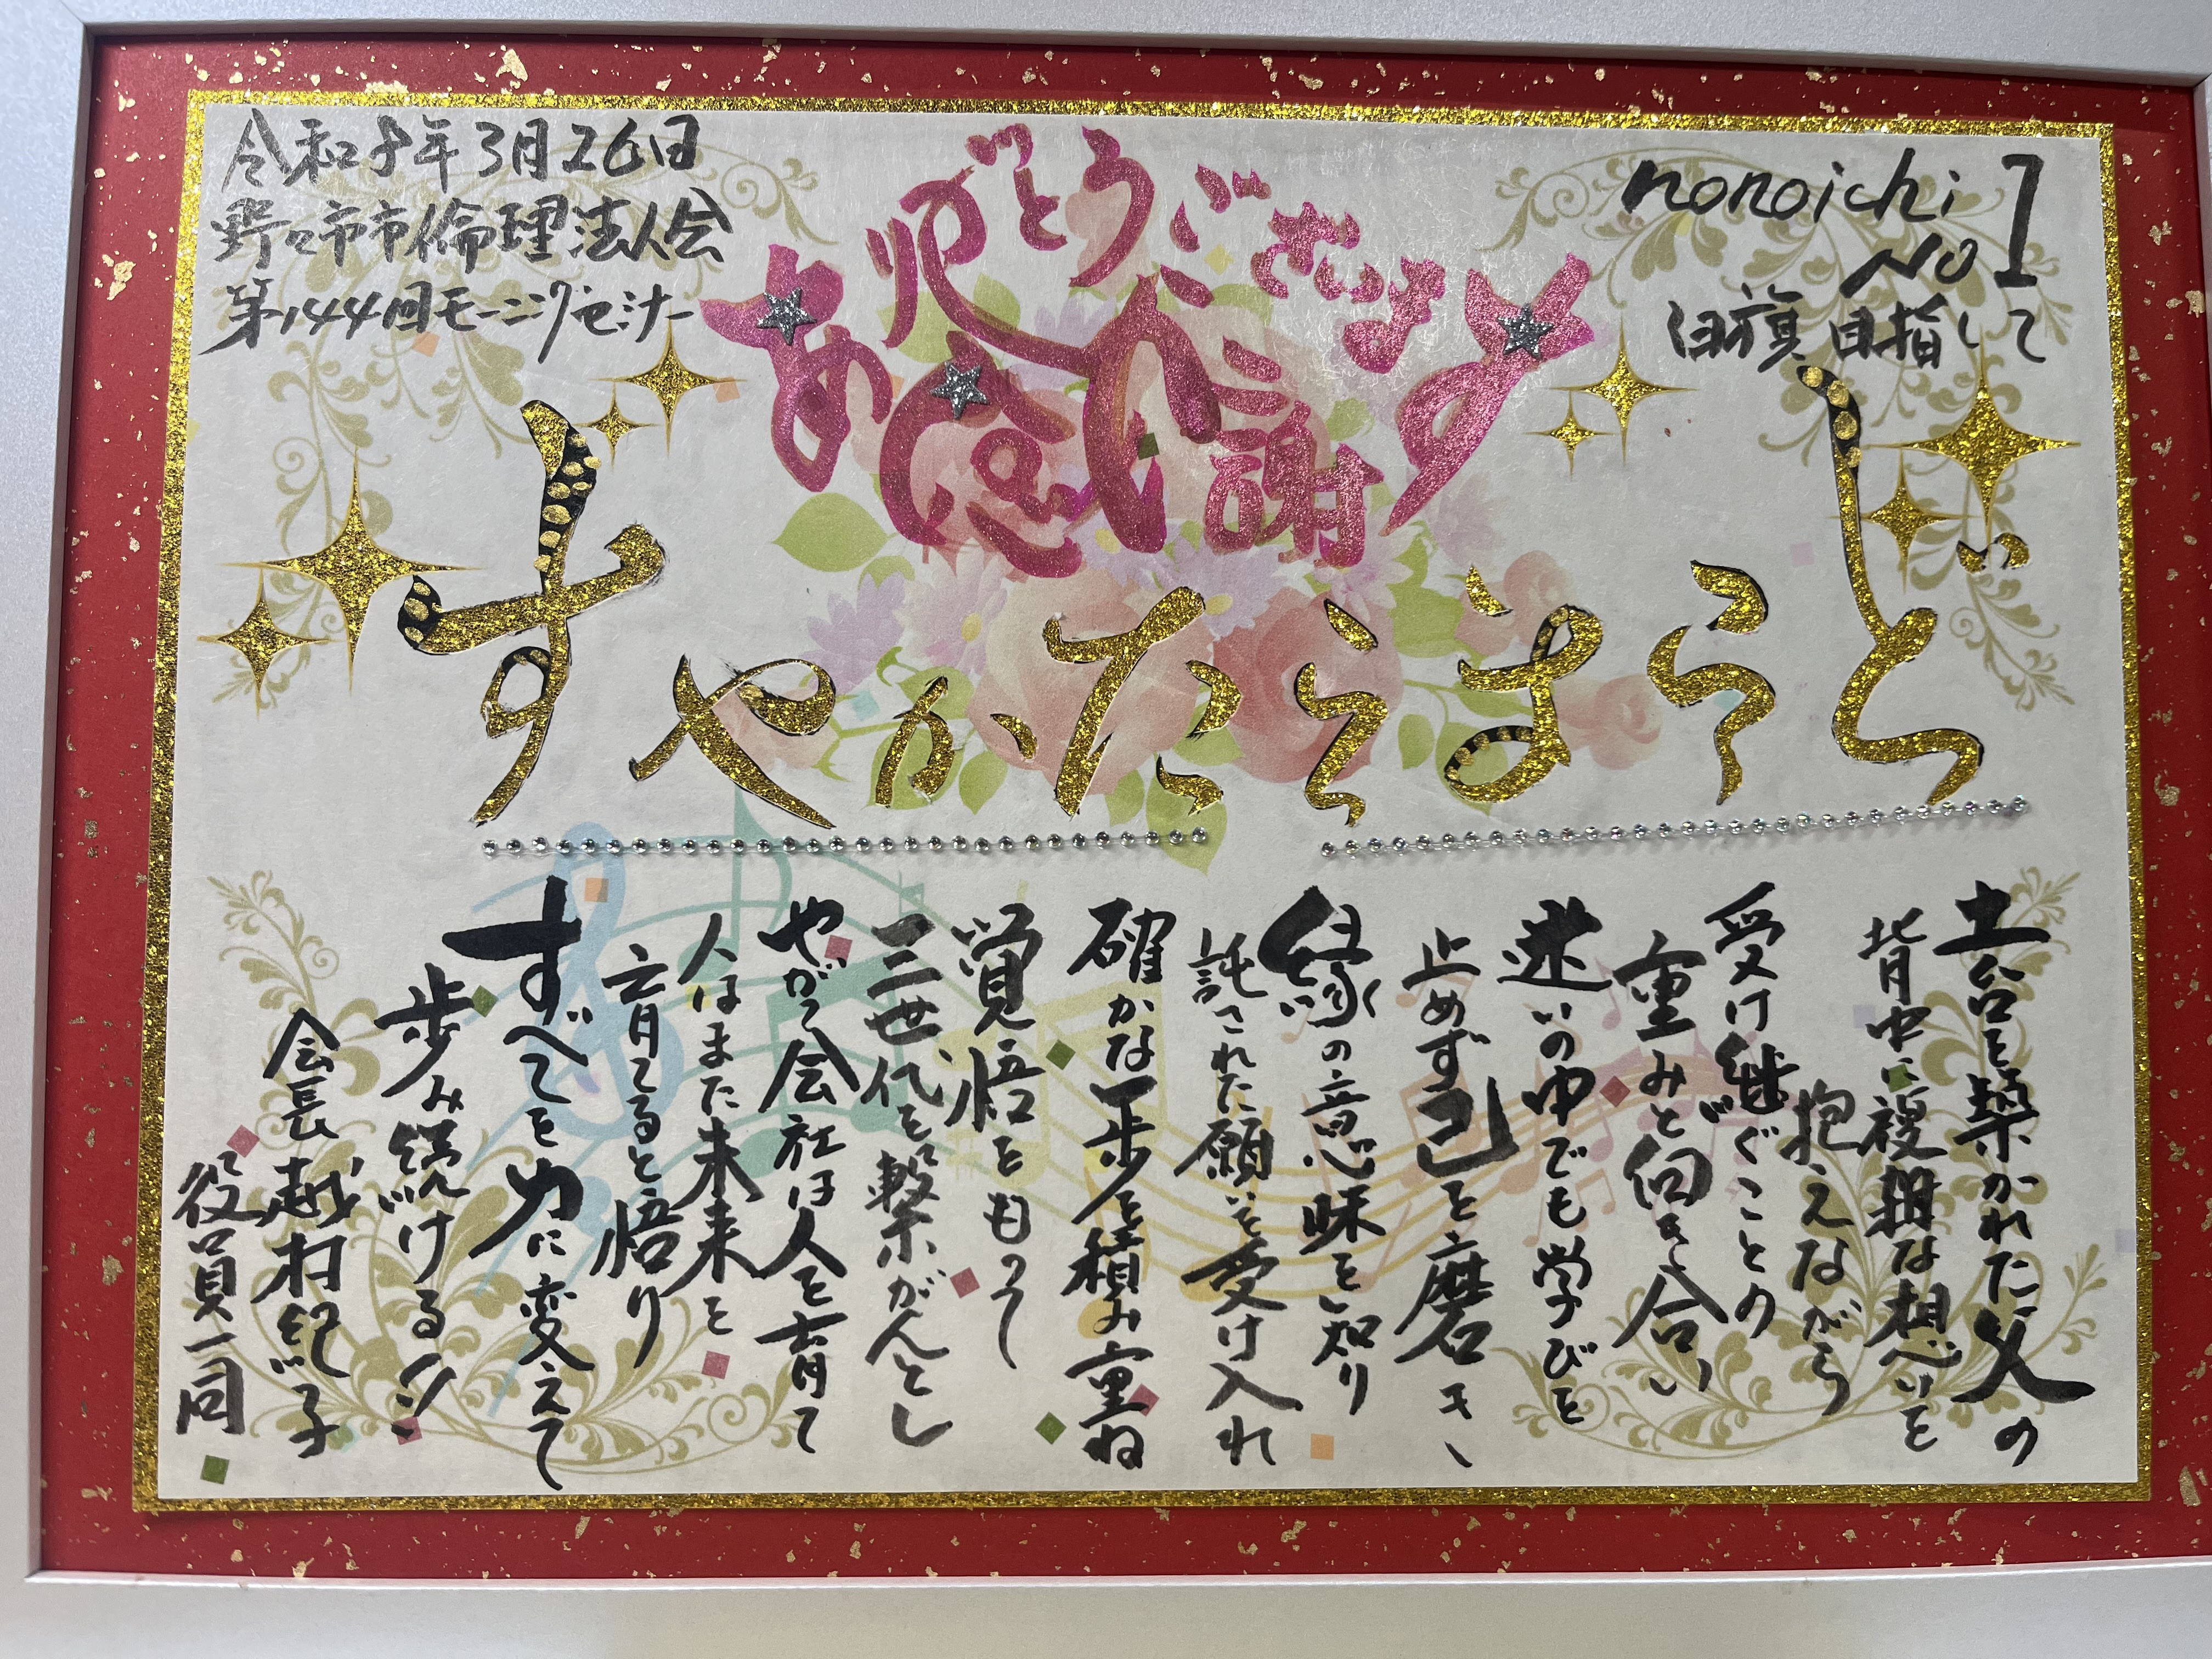 令和8年3月26日
野々市市倫理法人会
第144回モーニングセミナー
ありがとうございます
感謝
nonoichi
No1
目指して
どうまえたかやす
土台を築かれた父の
背中に複雑な想いを
抱えながら
受け継ぐことの
重みと向き合い
迷いの中でも学びを
止めず己を磨き
縁の意味を知り
託された願いを受け入れ
確かな一歩を積み重ね
覚悟をもって
三世代を繋がんとし
やがて会社は人を育て
人はまた未来を
育てると悟り
すべてを力に変えて
歩み続ける!!
会長 越村紀子
役員一同